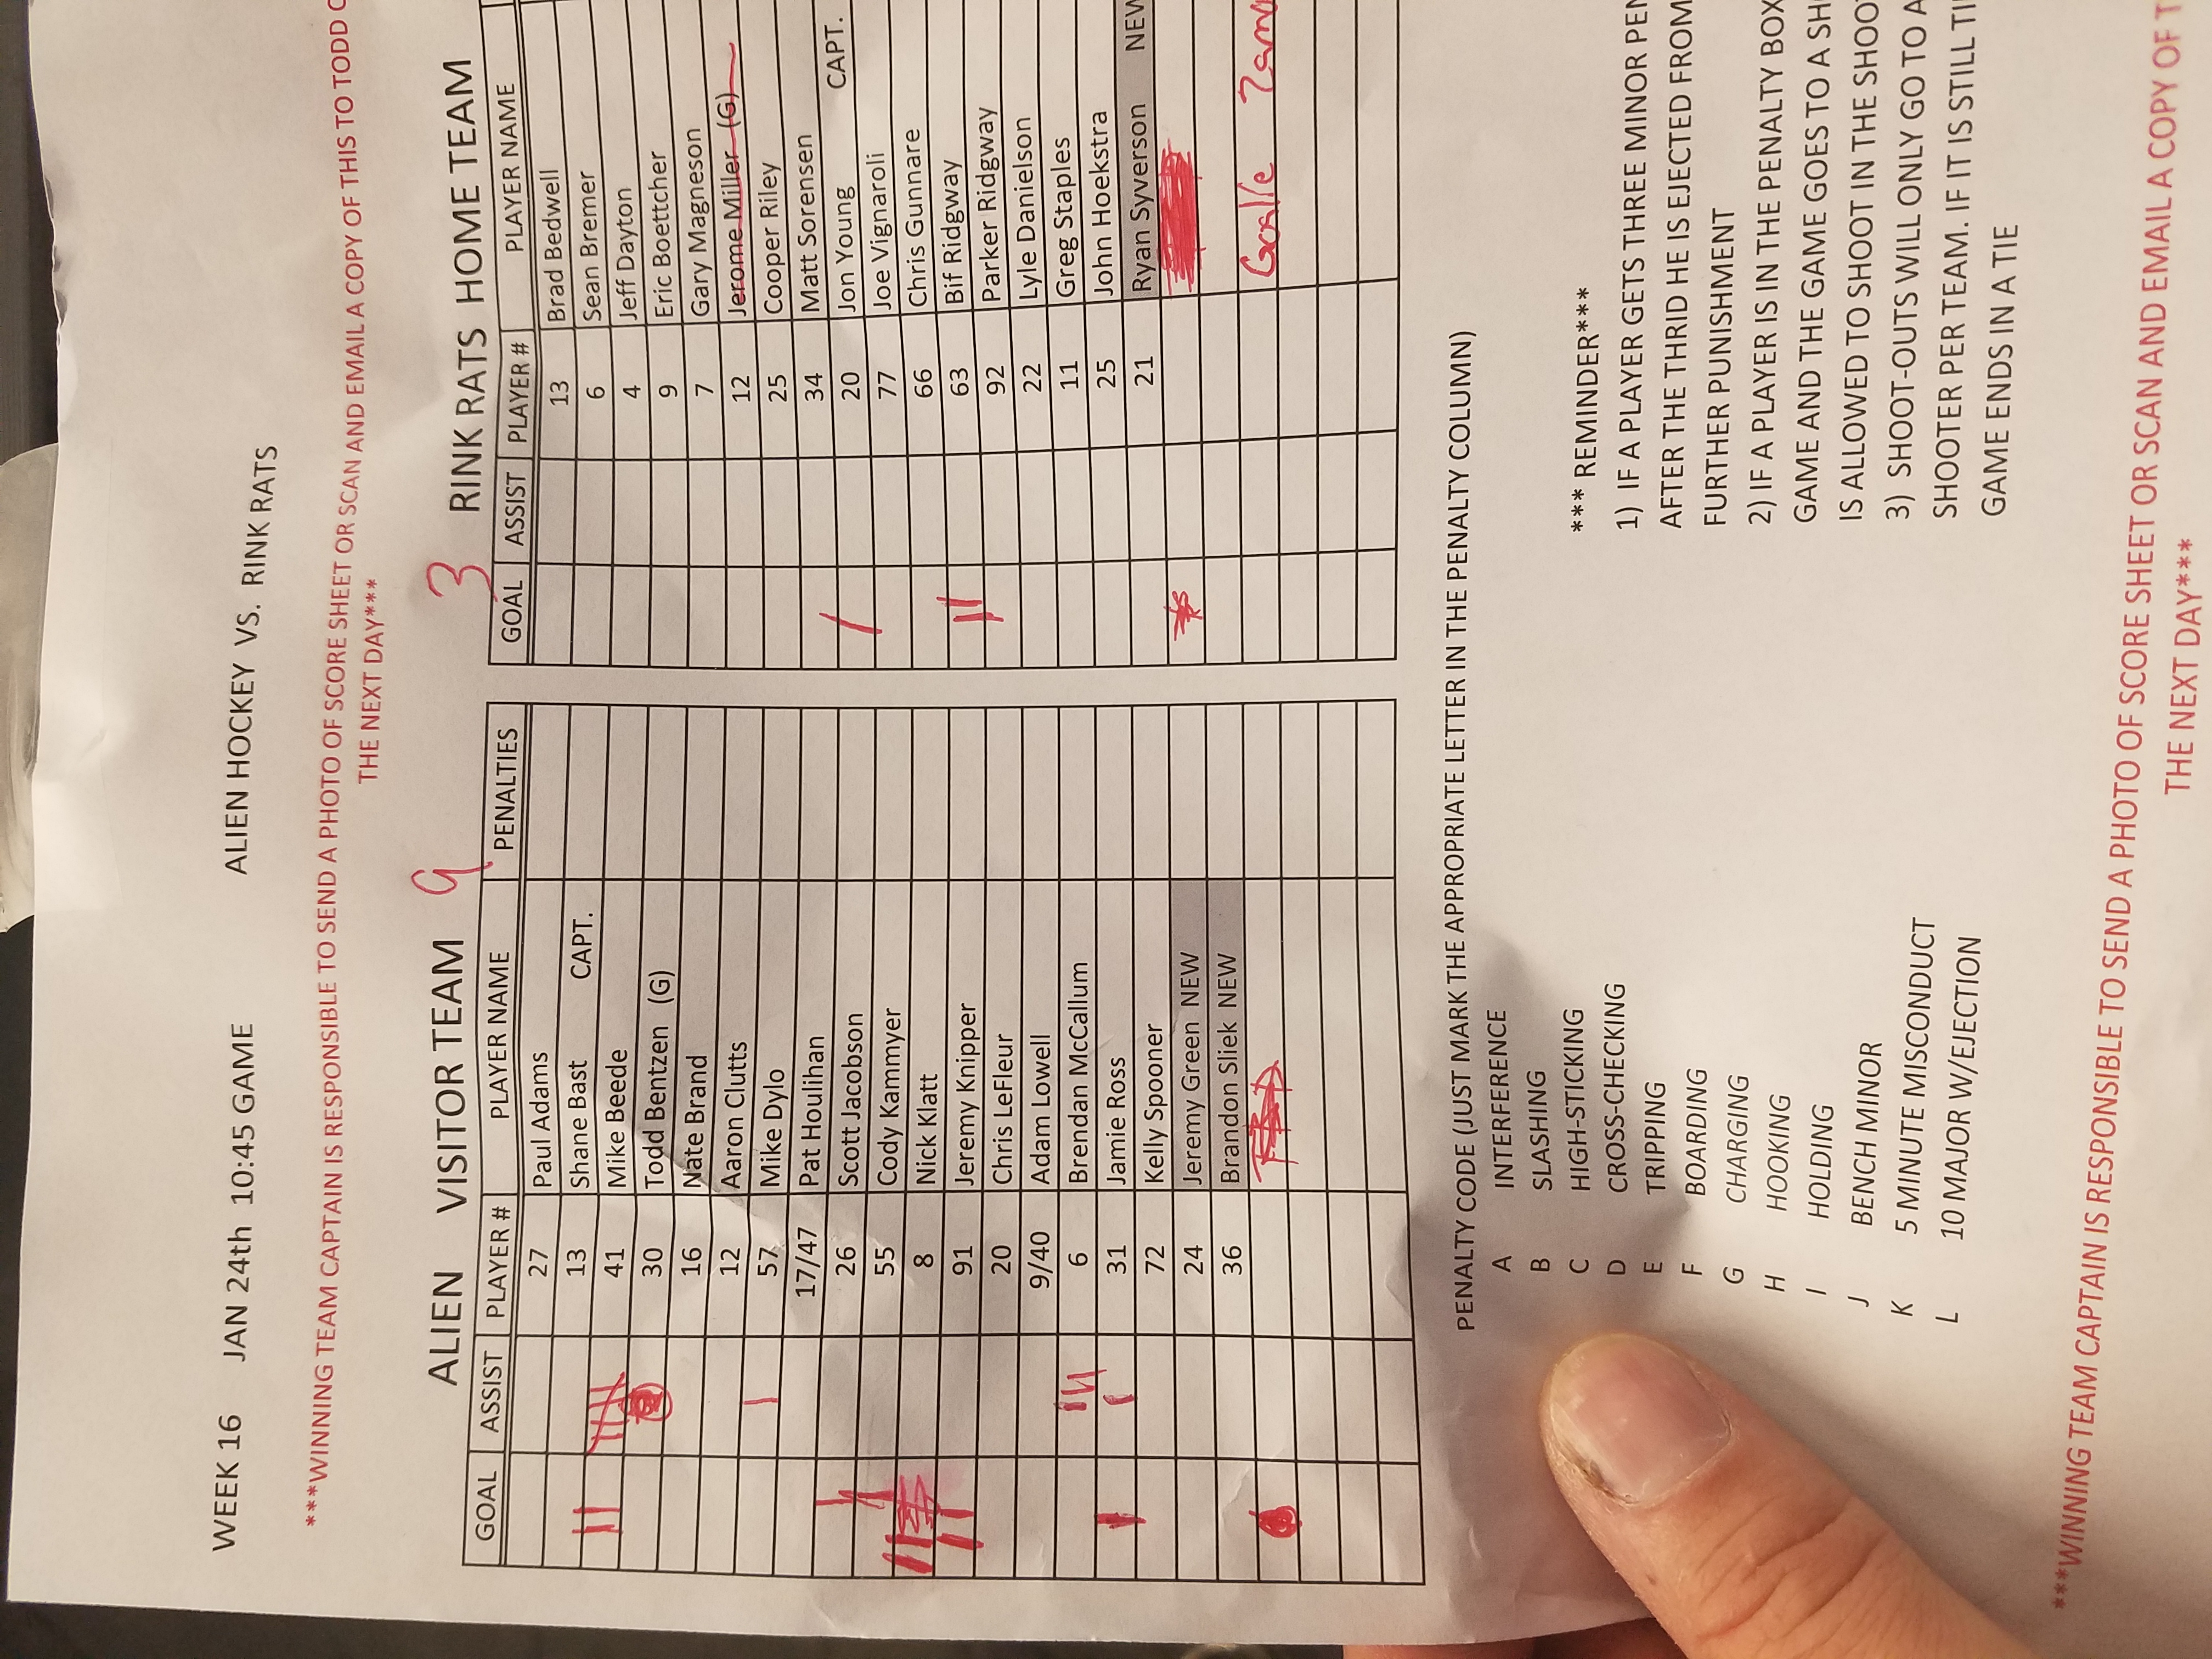 WEEK 16 JAN 24th 10:45 GAME ALIEN HOCKEY VS. RINK RATS
***WINNING TEAM CAPTAIN IS RESPONSIBLE TO SEND A PHOTO OF SCORE SHEET OR SCAN AND EMAIL A COPY OF THIS TO TODD
THE NEXT DAY***
ALIEN VISITOR TEAM 9
GOAL ASSIST PLAYER # PLAYER NAME PENALTIES
27 Paul Adams
13 Shane Bast CAPT.
41 Mike Beede
30 Todd Bentzen (G)
16 Nate Brand
12 Aaron Clutts
57 Mike Dylo
17/47 Pat Houlihan
26 Scott Jacobson
55 Cody Kammyer
8 Nick Klatt
91 Jeremy Knipper
20 Chris LeFleur
9/40 Adam Lowell
6 Brendan McCallum
31 Jamie Ross
72 Kelly Spooner
24 Jeremy Green NEW
36 Brandon Sliek NEW
3 RINK RATS HOME TEAM
GOAL ASSIST PLAYER # PLAYER NAME
13 Brad Bedwell
6 Sean Bremer
4 Jeff Dayton
9 Eric Boettcher
7 Gary Magneson
12 Jerome Miller (G)
25 Cooper Riley
34 Matt Sorensen
20 Jon Young CAPT.
77 Joe Vignaroli
66 Chris Gunnare
63 Bif Ridgway
92 Parker Ridgway
22 Lyle Danielson
11 Greg Staples
25 John Hoekstra
21 Ryan Syverson NEW
Goalie
PENALTY CODE (JUST MARK THE APPROPRIATE LETTER IN THE PENALTY COLUMN)
A INTERFERENCE
B SLASHING
C HIGH-STICKING
D CROSS-CHECKING
E TRIPPING
F BOARDING
G CHARGING
H HOOKING
I HOLDING
J BENCH MINOR
K 5 MINUTE MISCONDUCT
L 10 MAJOR W/EJECTION
*** REMINDER***
1) IF A PLAYER GETS THREE MINOR
AFTER THE THRID HE IS EJECTED FROM
FURTHER PUNISHMENT
2) IF A PLAYER IS IN THE PENALTY BOX
GAME AND THE GAME GOES TO A
IS ALLOWED TO SHOOT IN THE
3) SHOOT-OUTS WILL ONLY GO TO
SHOOTER PER TEAM. IF IT IS STILL
GAME ENDS IN A TIE
***WINNING TEAM CAPTAIN IS RESPONSIBLE TO SEND A PHOTO OF SCORE SHEET OR SCAN AND EMAIL A COPY OF
THE NEXT DAY***